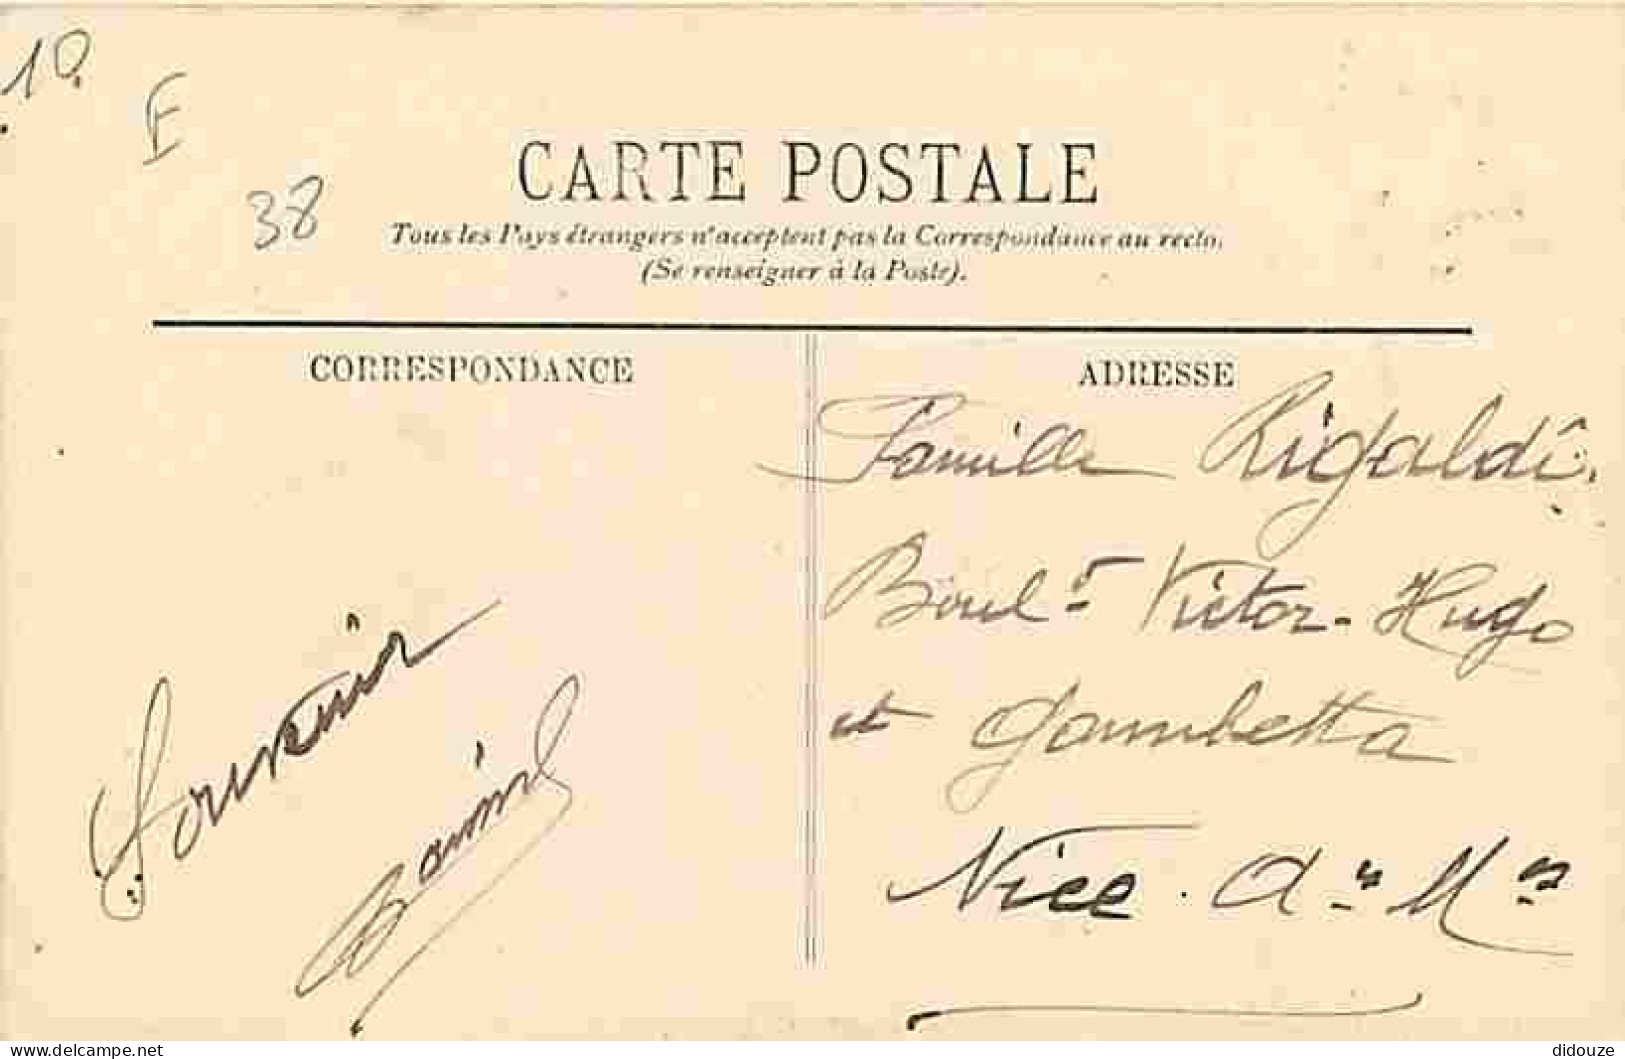 10.
E
38
CARTE POSTALE
Tous les Pays étrangers n'acceptent pas la Correspondance au recto.
(Se renseigner à la Poste).
CORRESPONDANCE
ADRESSE
Famille Rigaldi.
Boul.d Victor-Hugo
et Gambetta
Nice. A.es M.es
Souvenir
delcampe.net
didouze